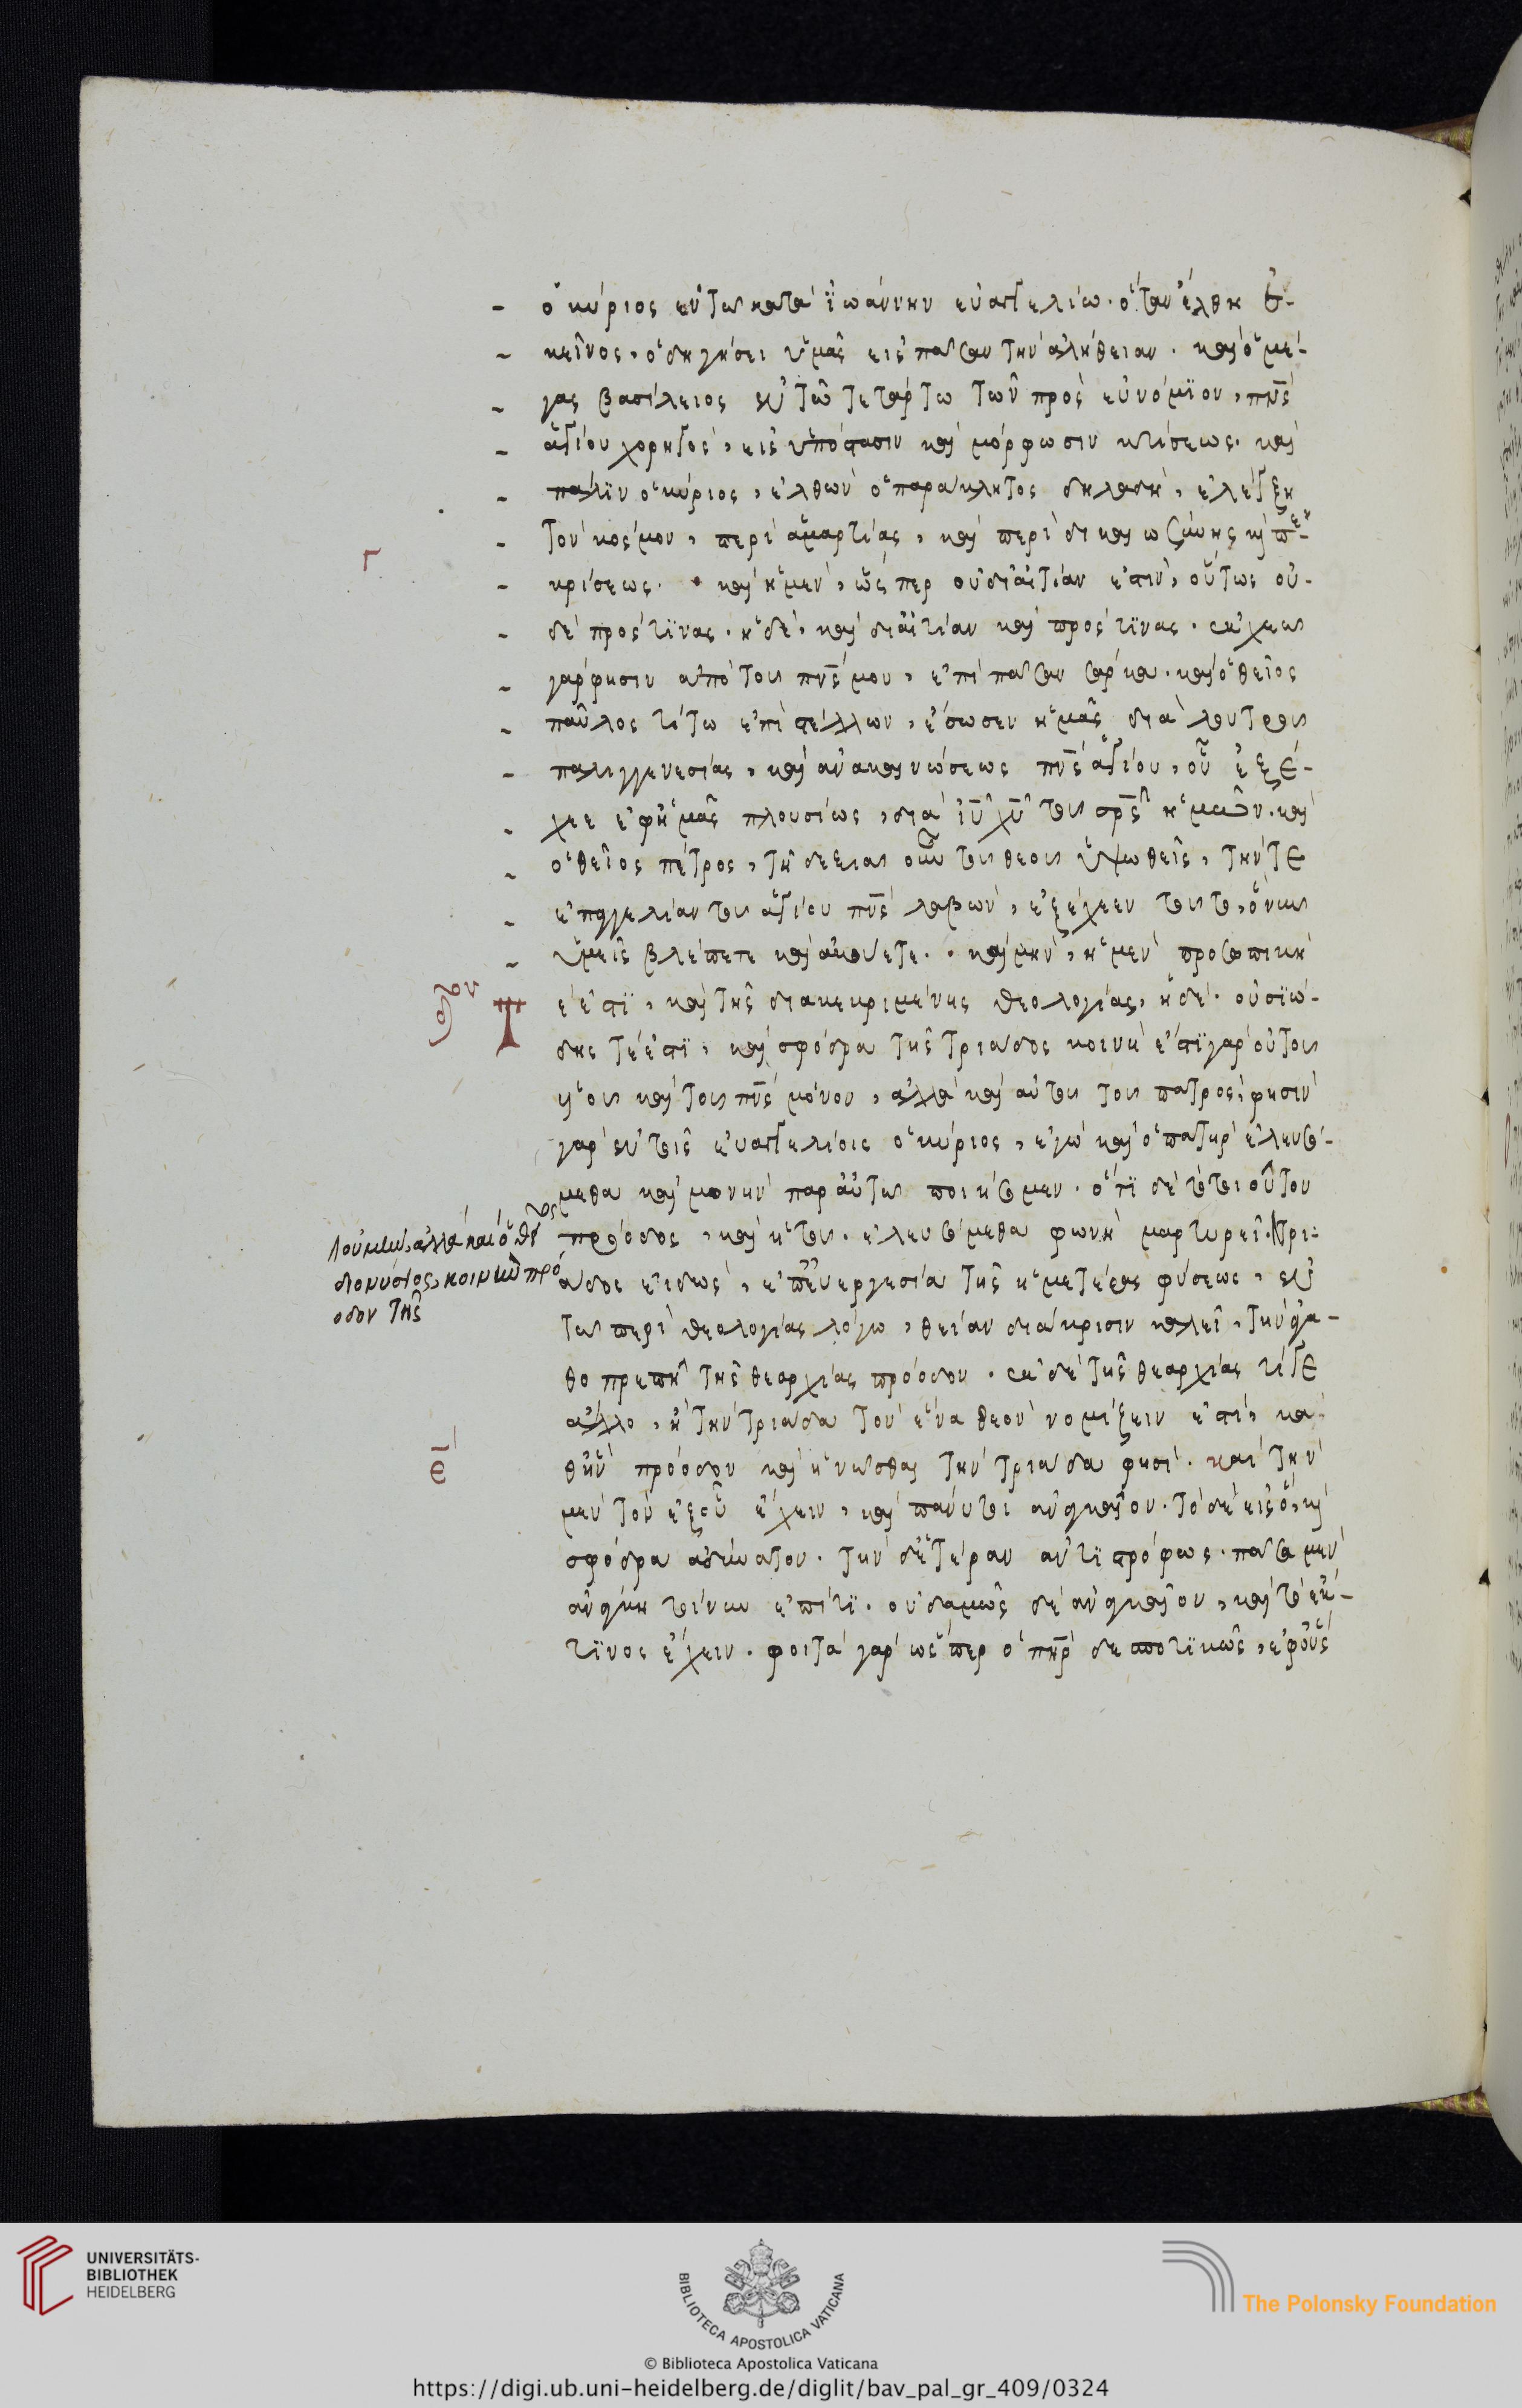 ὁ κύριος ἐν τῶ κατὰ ἰωάννην εὐαγγελίω. ὅταν ἔλθη ἐ-
κεῖνος, ὁδηγήσει ὑμᾶς εἰς πᾶσαν τὴν ἀλήθειαν. καὶ ὁ μέ-
γας βασίλειος ἐν τῶ τετάρτω τῶν πρὸς εὐνόμϊον, πνς
ἁγίου χορηγὸς, εἰς ὑπόστασιν καὶ μόρφωσιν κτίσεως. καὶ
πάλϊν ὁ κύριος, ἐλθὼν ὁ παράκλητος δηλαδὴ, ἐλέγξη
Γ
τὸν κόσμον, περὶ ἁμαρτίας, καὶ περὶ δικαιωσύνης καὶ πε-
κρίσεως. καὶ ἡ μὲν, ὥσπερ οὐ δι αἰτίαν ἐστὶν, οὕτως οὐ-
δὲ πρὸς τϊνας. ἡ δὲ, καὶ δι αἰτίαν καὶ πρὸς τϊνας. ἐκχεῶ
γάρ φησιν ἀπὸ τοῦ πνς μου, ἐπὶ πᾶσαν σάρκα. καὶ ὁ θεῖος
παῦλος τίτω ἐπιστέλλων, ἔσωσεν ἡμᾶς διὰ λουτροῦ
παλιγγενεσίας, καὶ ἀνακαινώσεως πνς ἁγίου, οὗ ἐξέ-
χεε ἐφ ἡμᾶς πλουσίως, διὰ ιυ χυ τοῦ σρς ἡμῶν. καὶ
ὁ θεῖος πέτρος, τῆ δεξιᾶ οὖν τοῦ θεοῦ ὑψωθεὶς, τήν τε
ἐπαγγελίαν τοῦ ἁγίου πνς λαβὼν, ἐξέχεεν τοῦτο, ὃ νῦν
ὑμεῖς βλέπετε καὶ ἀκούετε. καὶ μὴν, ἡ μὲν προσωπικὴ
τ
έ ἐστϊ, καὶ τῆς διακεκριμένης θεολογίας, ἡ δὲ, οὐσϊώ-
δης τέ ἐστϊ, καὶ σφόδρα τῆς τριάδος κοινὴ ἔστϊ γὰρ οὐ τοῦ
υἱοῦ καὶ τοῦ πνς μόνον, ἀλλὰ καὶ αὐτοῦ τοῦ πατρός, φησὶν
γὰρ ἐν τοῖς εὐαγγελίοις ὁ κύριος, ἐγὼ καὶ ὁ πατὴρ ἐλευσό-
μεθα καὶ μονὴν παρ αὐτῶ ποιήσομεν. ὅτϊ δὲ τὸ τοιοῦτον
πρόοδος, καὶ ἡ τοῦ, ἐλευσόμεθα φωνὴ μαρτυρεῖ. τρι-
τούμῶν, ἀλλὰ καὶ ὁ θεῖος
διονύσιος, κοινὴν πρό
οδον τῆς
άδος εἰδὼς, ἐπ εὐεργεσία τῆς ἡμετέρας φύσεως, ἐν
τῶ περὶ θεολογίας λόγω, θείαν διάκρισιν καλεῖ, τὴν ἀγα-
θοπρεπῆ τῆς θεαρχίας πρόοδον. ἐκ δὲ τῆς θεαρχίας τί γε
ἄλλο, ἢ τὴν τριάδα τὸν ἕνα θεὸν νομίζειν ἐστὶ, κα-
ε
θ ἣν πρόοδον καὶ ἡνῶσθαι τὴν τριάδα φησί. καὶ τὴν
μὲν τὸν ἐξ οὗ ἔχειν, καὶ πάνυ τοι ἀναγκαῖον. τὸ δὲ εἰς ὃ, καὶ
σφόδρα ἀδύνατον. τὴν δ ἑτέραν ἀντϊστρόφως. πᾶσα μὲν
ἀνάγκη τείνειν ἐπί τϊ. οὐδαμῶς δὲ ἀναγκαῖον, καὶ τὸ ἔκ
τϊνος ἔχειν. φοιτᾶ γὰρ ὥσπερ ὁ πηρ δεσποτϊκῶς, ἐφ οὓς